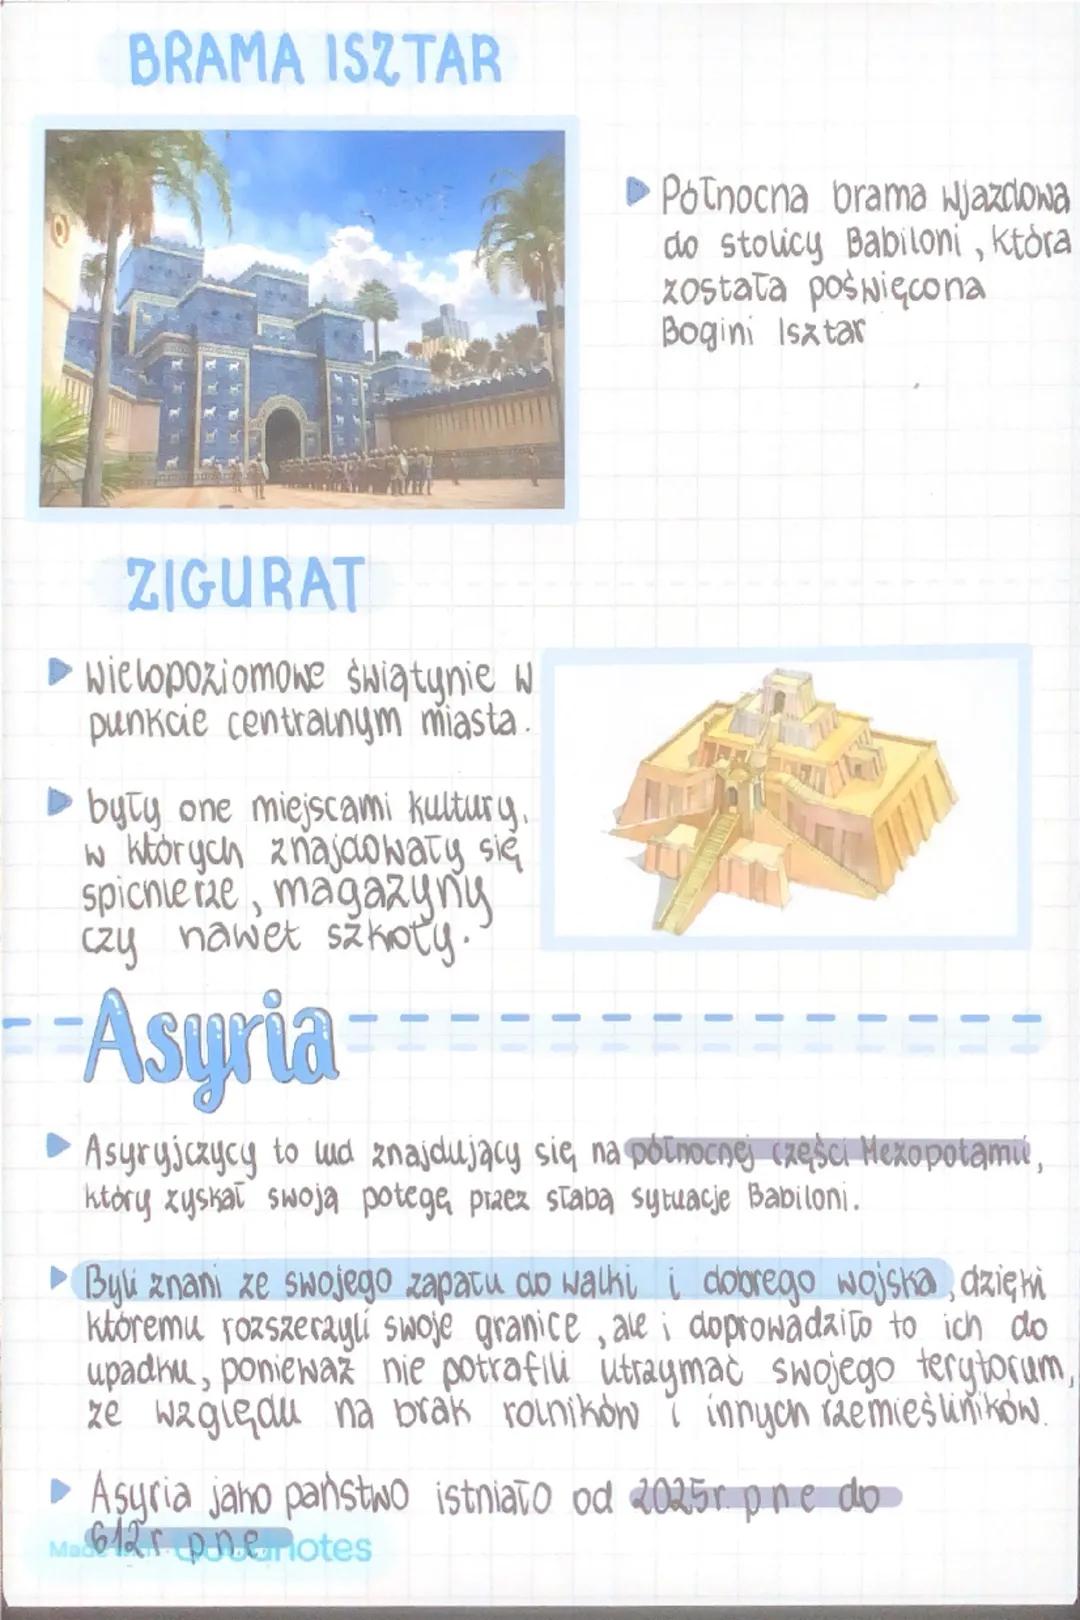 BRAMA ISZTAR
Północna brama wjazdowa
do stolicy Babiloni, która
została poświęcona
Bogini Isztar
ZIGURAT
wielopoziomowe świątynie w
punkcie centralnym miasta.
były one miejscami kultury,
w których znajdowały się
spichlerze, magazyny
czy nawet szkoły.
Asyria
Asyryjczycy to lud znajdujący się na północnej części Mezopotamii,
który zyskał swoją potegę przez słabą sytuacje Babiloni.
Byli znani ze swojego zapału do walki i dobrego wojska, dzięki
któremu rozszerzyli swoje granice, ale i doprowadziło to ich do
upadku, ponieważ nie potrafili utrzymać swojego terytorum,
ze względu na brak rolników i innych rzemieślników.
Asyria jako państwo istniało od 2025r. pne do
612r pne
Made Goodnotes